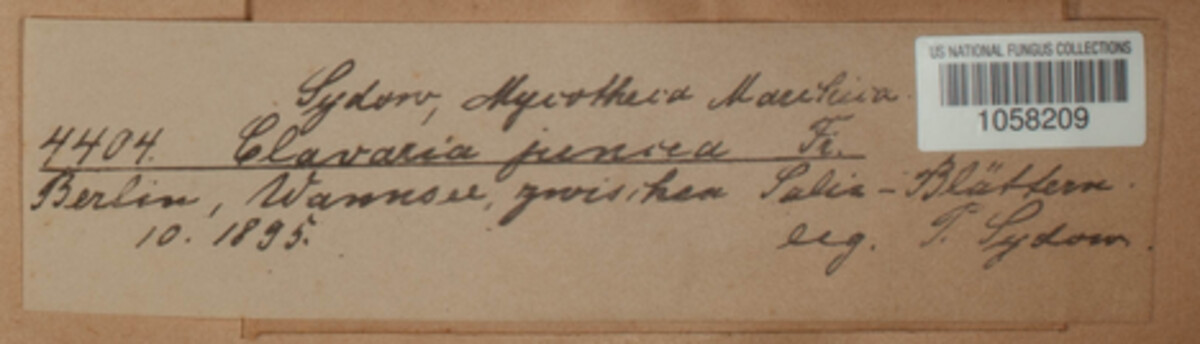 Sydow, Mycotheca Marchica.
US NATIONAL FUNGUS COLLECTIONS
1058209
4404. Clavaria juncea Fr.
Berlin, Wannsee, zwischen Salix-Blättern.
10. 1895.
leg. P. Sydow.